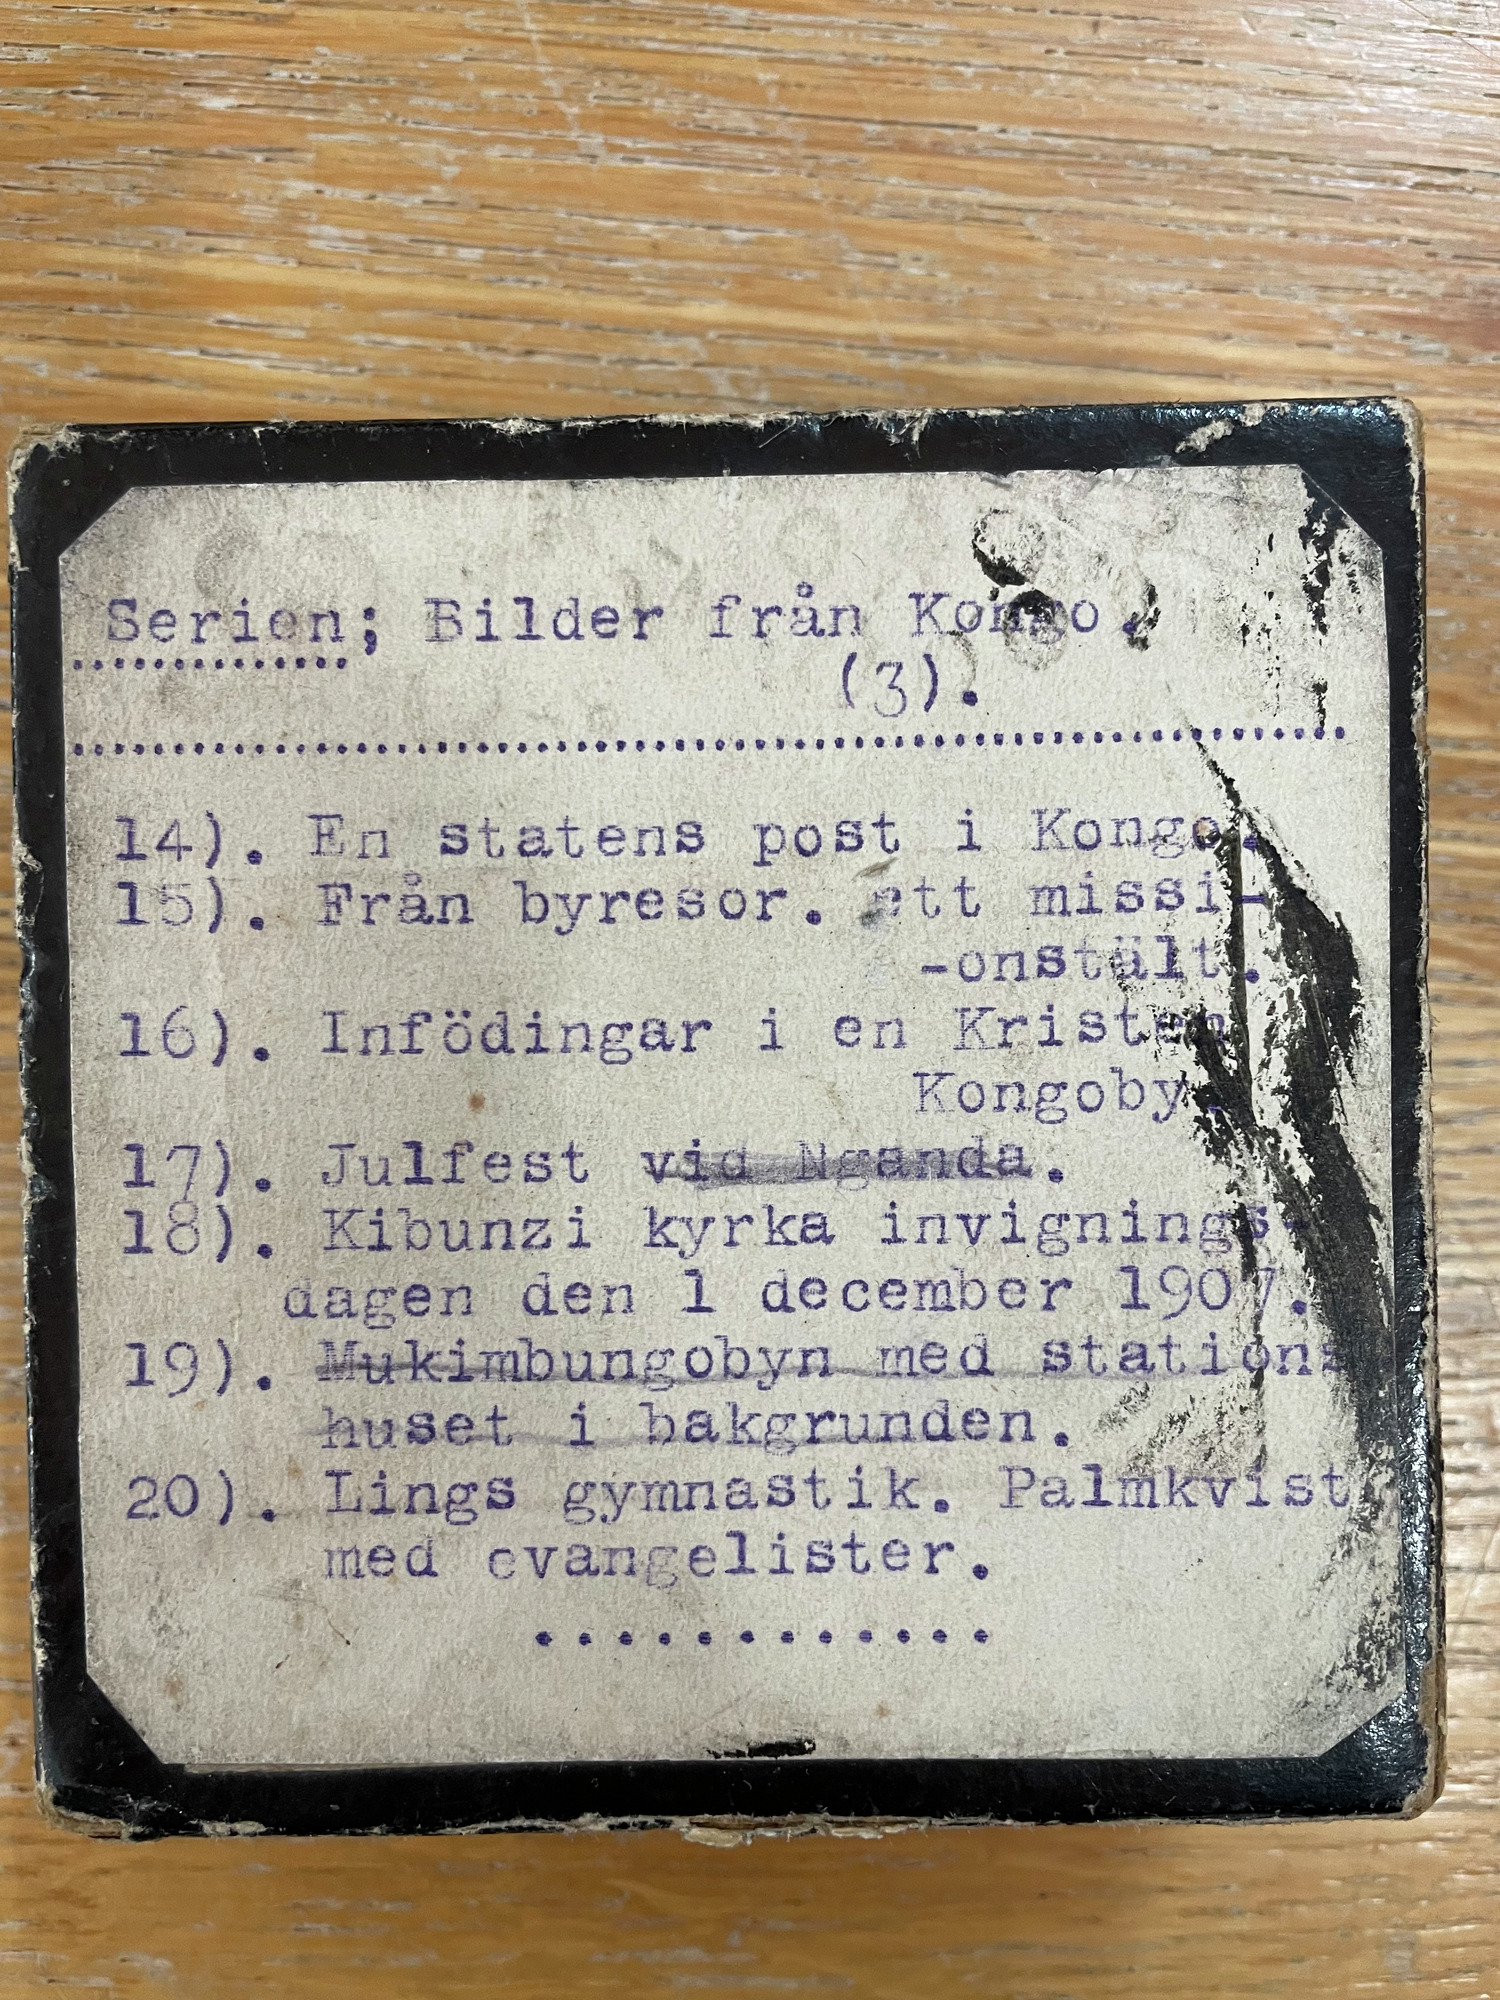 Serien; Bilder från Kongo.
(3).
14). En statens post i Kongo.
15). Från byresor. ett missi-
-onstält.
16). Infödingar i en Kristen
Kongoby.
17). Julfest vid Nganda.
18). Kibunzi kyrka invignings-
dagen den 1 december 1907.
19). Mukimbungobyn med stations
huset i bakgrunden.
20). Lings gymnastik. Palmkvist
med evangelister.